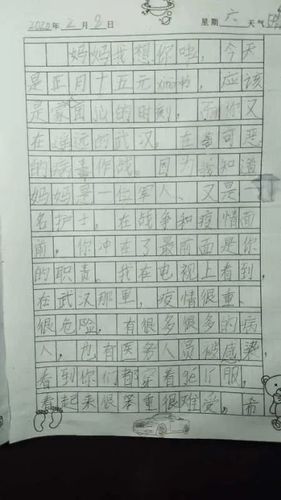 2020年2月8日 星期六 天气
妈妈我想你啦，今天
是正月十五元xiao，应该
是家团圆的时刻，而你又
在遥远的武汉，在与可恶
的病毒作战。因为我知道
妈妈是一位军人、又是一
名护士，在战争和疫情面
前，你冲在了最前面是你
的职责。我在电视上看到，
在武汉那里，疫情很重、
很危险，有很多很多的病
人，也有医务人员被感染，
看到你们都穿着ge li服，
看起来很笨重很难受，希